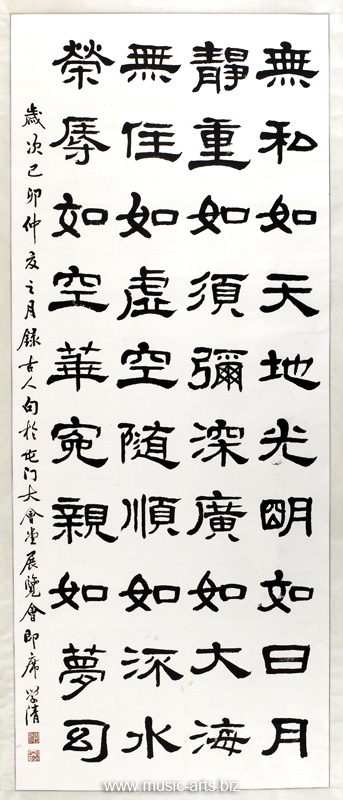 無私如天地光明如日月
靜重如須彌深廣如大海
無住如虛空隨順如流水
榮辱如空華冤親如夢幻
歲次己卯仲夏之月錄古人句於屯门大會堂展覽會即席 学清
www.music-arts.biz